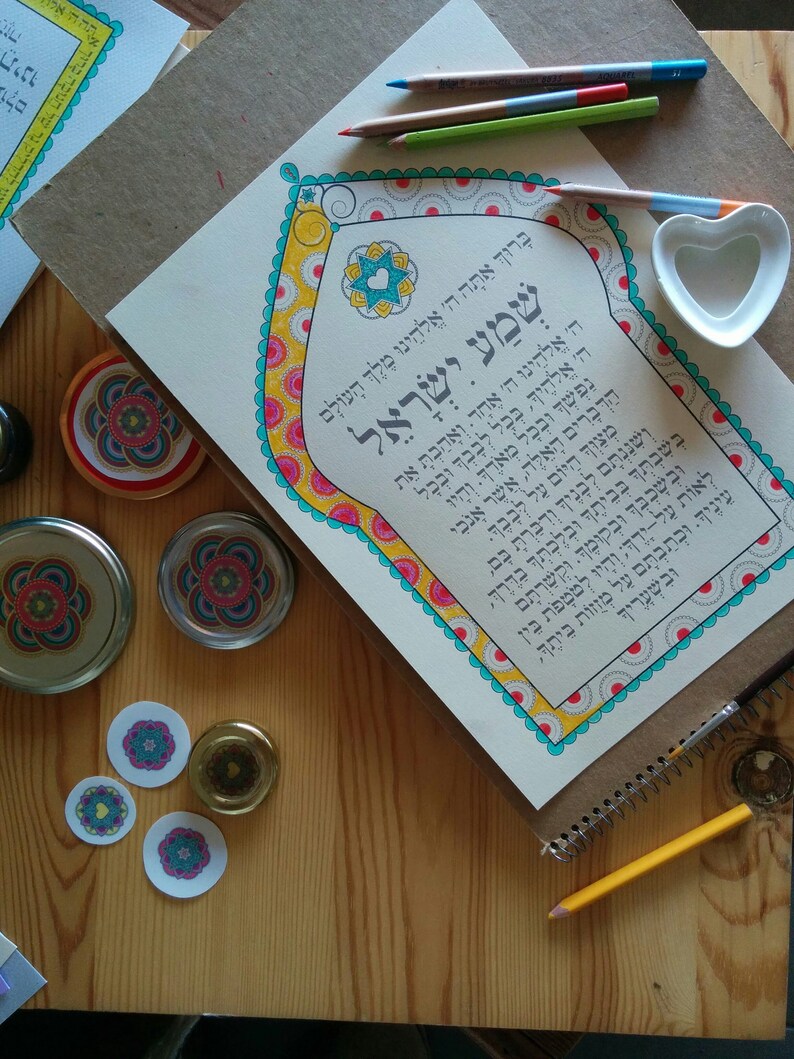 בָּרוּךְ אַתָּה ה׳ אֱלֹהֵינוּ מֶלֶךְ הָעוֹלָם
שְׁמַע יִשְׂרָאֵל
ה׳ אֱלֹהֵינוּ ה׳ אֶחָד, וְאָהַבְתָּ אֵת
ה׳ אֱלֹהֶיךָ בְּכָל לְבָבְךָ וּבְכָל
נַפְשְׁךָ וּבְכָל מְאֹדֶךָ וְהָיוּ
הַדְּבָרִים הָאֵלֶּה, אֲשֶׁר אָנֹכִי
מְצַוְּךָ הַיּוֹם עַל לְבָבֶךָ
וְשִׁנַּנְתָּם לְבָנֶיךָ וְדִבַּרְתָּ בָּם
בְּשִׁבְתְּךָ בְּבֵיתֶךָ וּבְלֶכְתְּךָ בַדֶּרֶךְ,
וּבְשָׁכְבְּךָ וּבְקוּמֶךָ. וּקְשַׁרְתָּם
לְאוֹת עַל-יָדֶךָ, וְהָיוּ לְטֹטָפֹת בֵּין
עֵינֶיךָ. וּכְתַבְתָּם עַל מְזֻזוֹת בֵּיתֶךָ,
וּבִשְׁעָרֶיךָ
AQUAREL